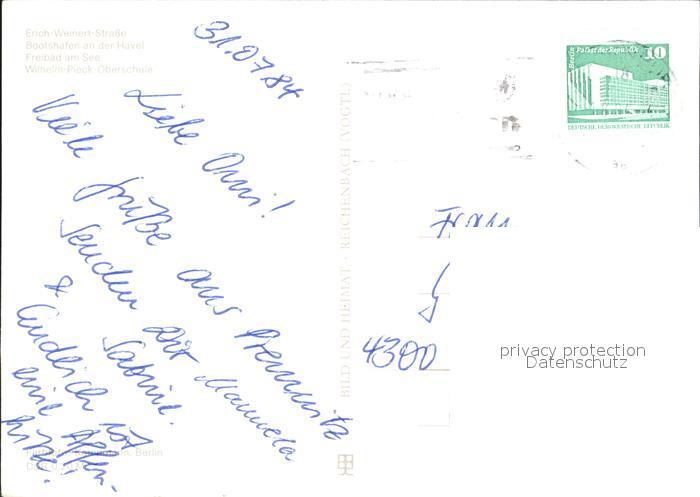 Erich-Weinert-Straße
Bootshafen an der Havel
Freibad am See
Wilhelm-Pieck-Oberschule
31.07.84
Liebe Omi!
Viele Grüße aus Premnitz
senden Dir Manuela
& Sabine.
Endlich ist
eine Affen-
hitze!
Berlin Palast der Republik 10
DEUTSCHE DEMOKRATISCHE REPUBLIK
BILD UND HEIMAT · REICHENBACH (VOGTL)
Frau
4300
privacy protection
Datenschutz
Berlin